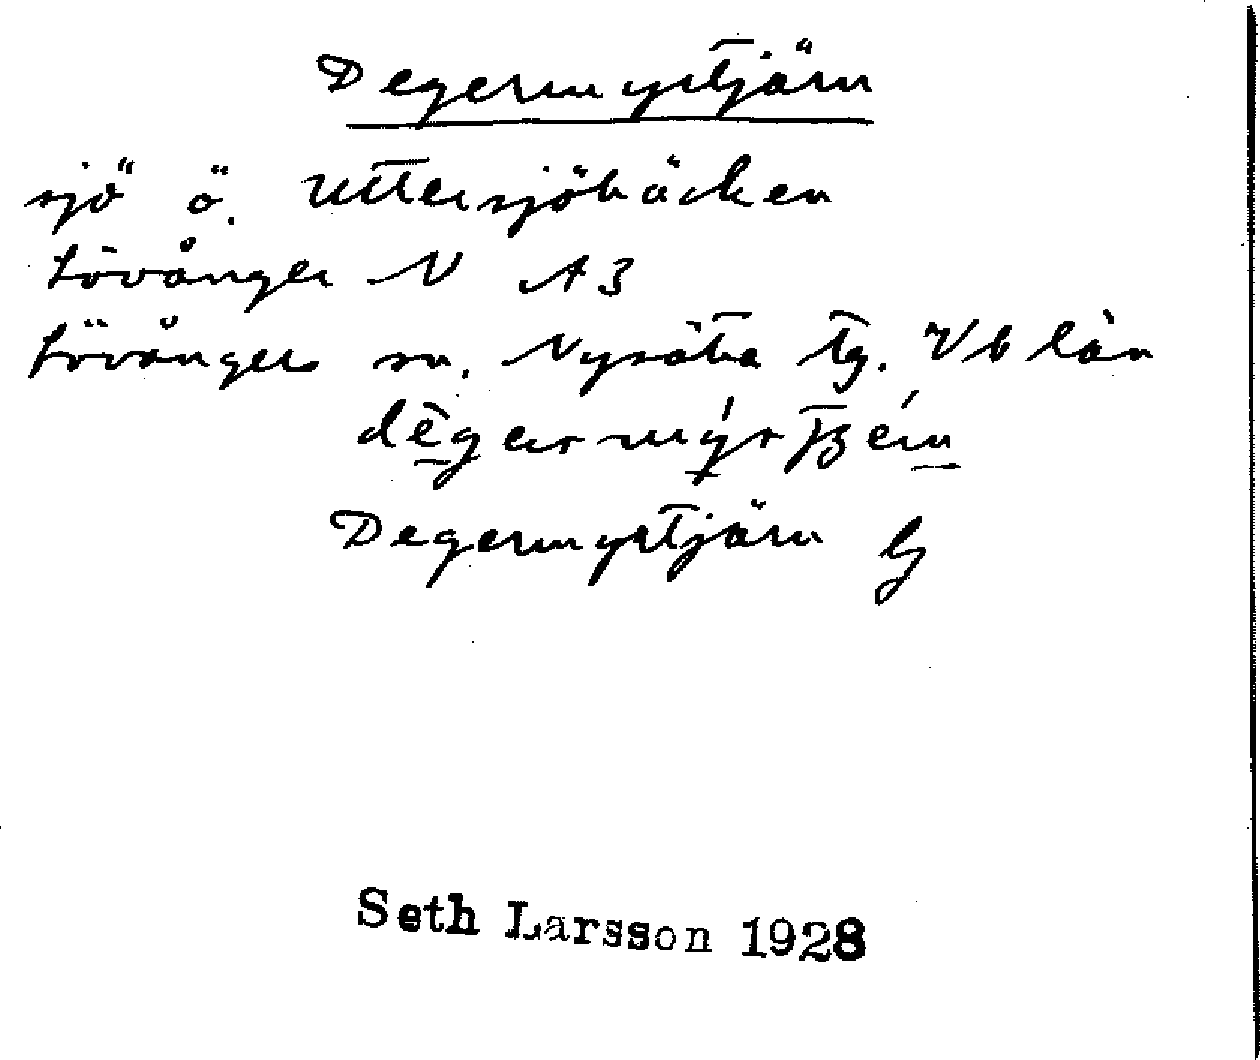 Degermyrtjärn
sjö ö. Uttersjöbäcken
Lövånger N A3
Lövångers sn. Nysätra tg. Vb län
Degermyrtjärn
Seth Larsson 1928